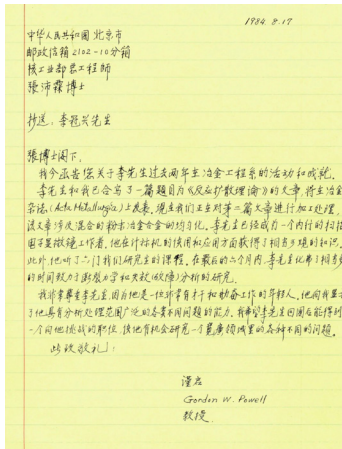 1984. 8.17
中华人民共和国 北京市
邮政信箱 2102-10分箱
核工业部总工程师
張沛霖博士
抄送：李冠兴先生
張博士阁下：
我今函告您关于李先生过去两年主冶金工程系的活动和成就。
李先生和我已合写了一篇题目为《反应扩散理论》的文章，将主冶金
杂志(Acta Metallurgia)上发表。现主我们正主对第二篇文章进行加工处理，
该文章涉及混合的粉末冶金合金的均匀化。李先生已经成为一个内行的扫描
电子显微镜工作者，他在计标机的使用和应用方面获得了相当多的知识。
此外，他听了六门我们研究生的课程。在最近的六个月内，李先生化弗了相当多
的时间致力于断裂力学和失效(故障)分析的研究。
我非常尊重李先生，因为他是一位非常有才干和勤奋工作的年轻人，他向我显示
了他具有分析处理范围广泛的各类不同问题的能力，我希望李先生回国后能得到
一个向他挑战的职位，使他有机会研究一个宽广领域里的各种不同的问题。
此致敬礼！
谨启
Gordon W. Powell
教授